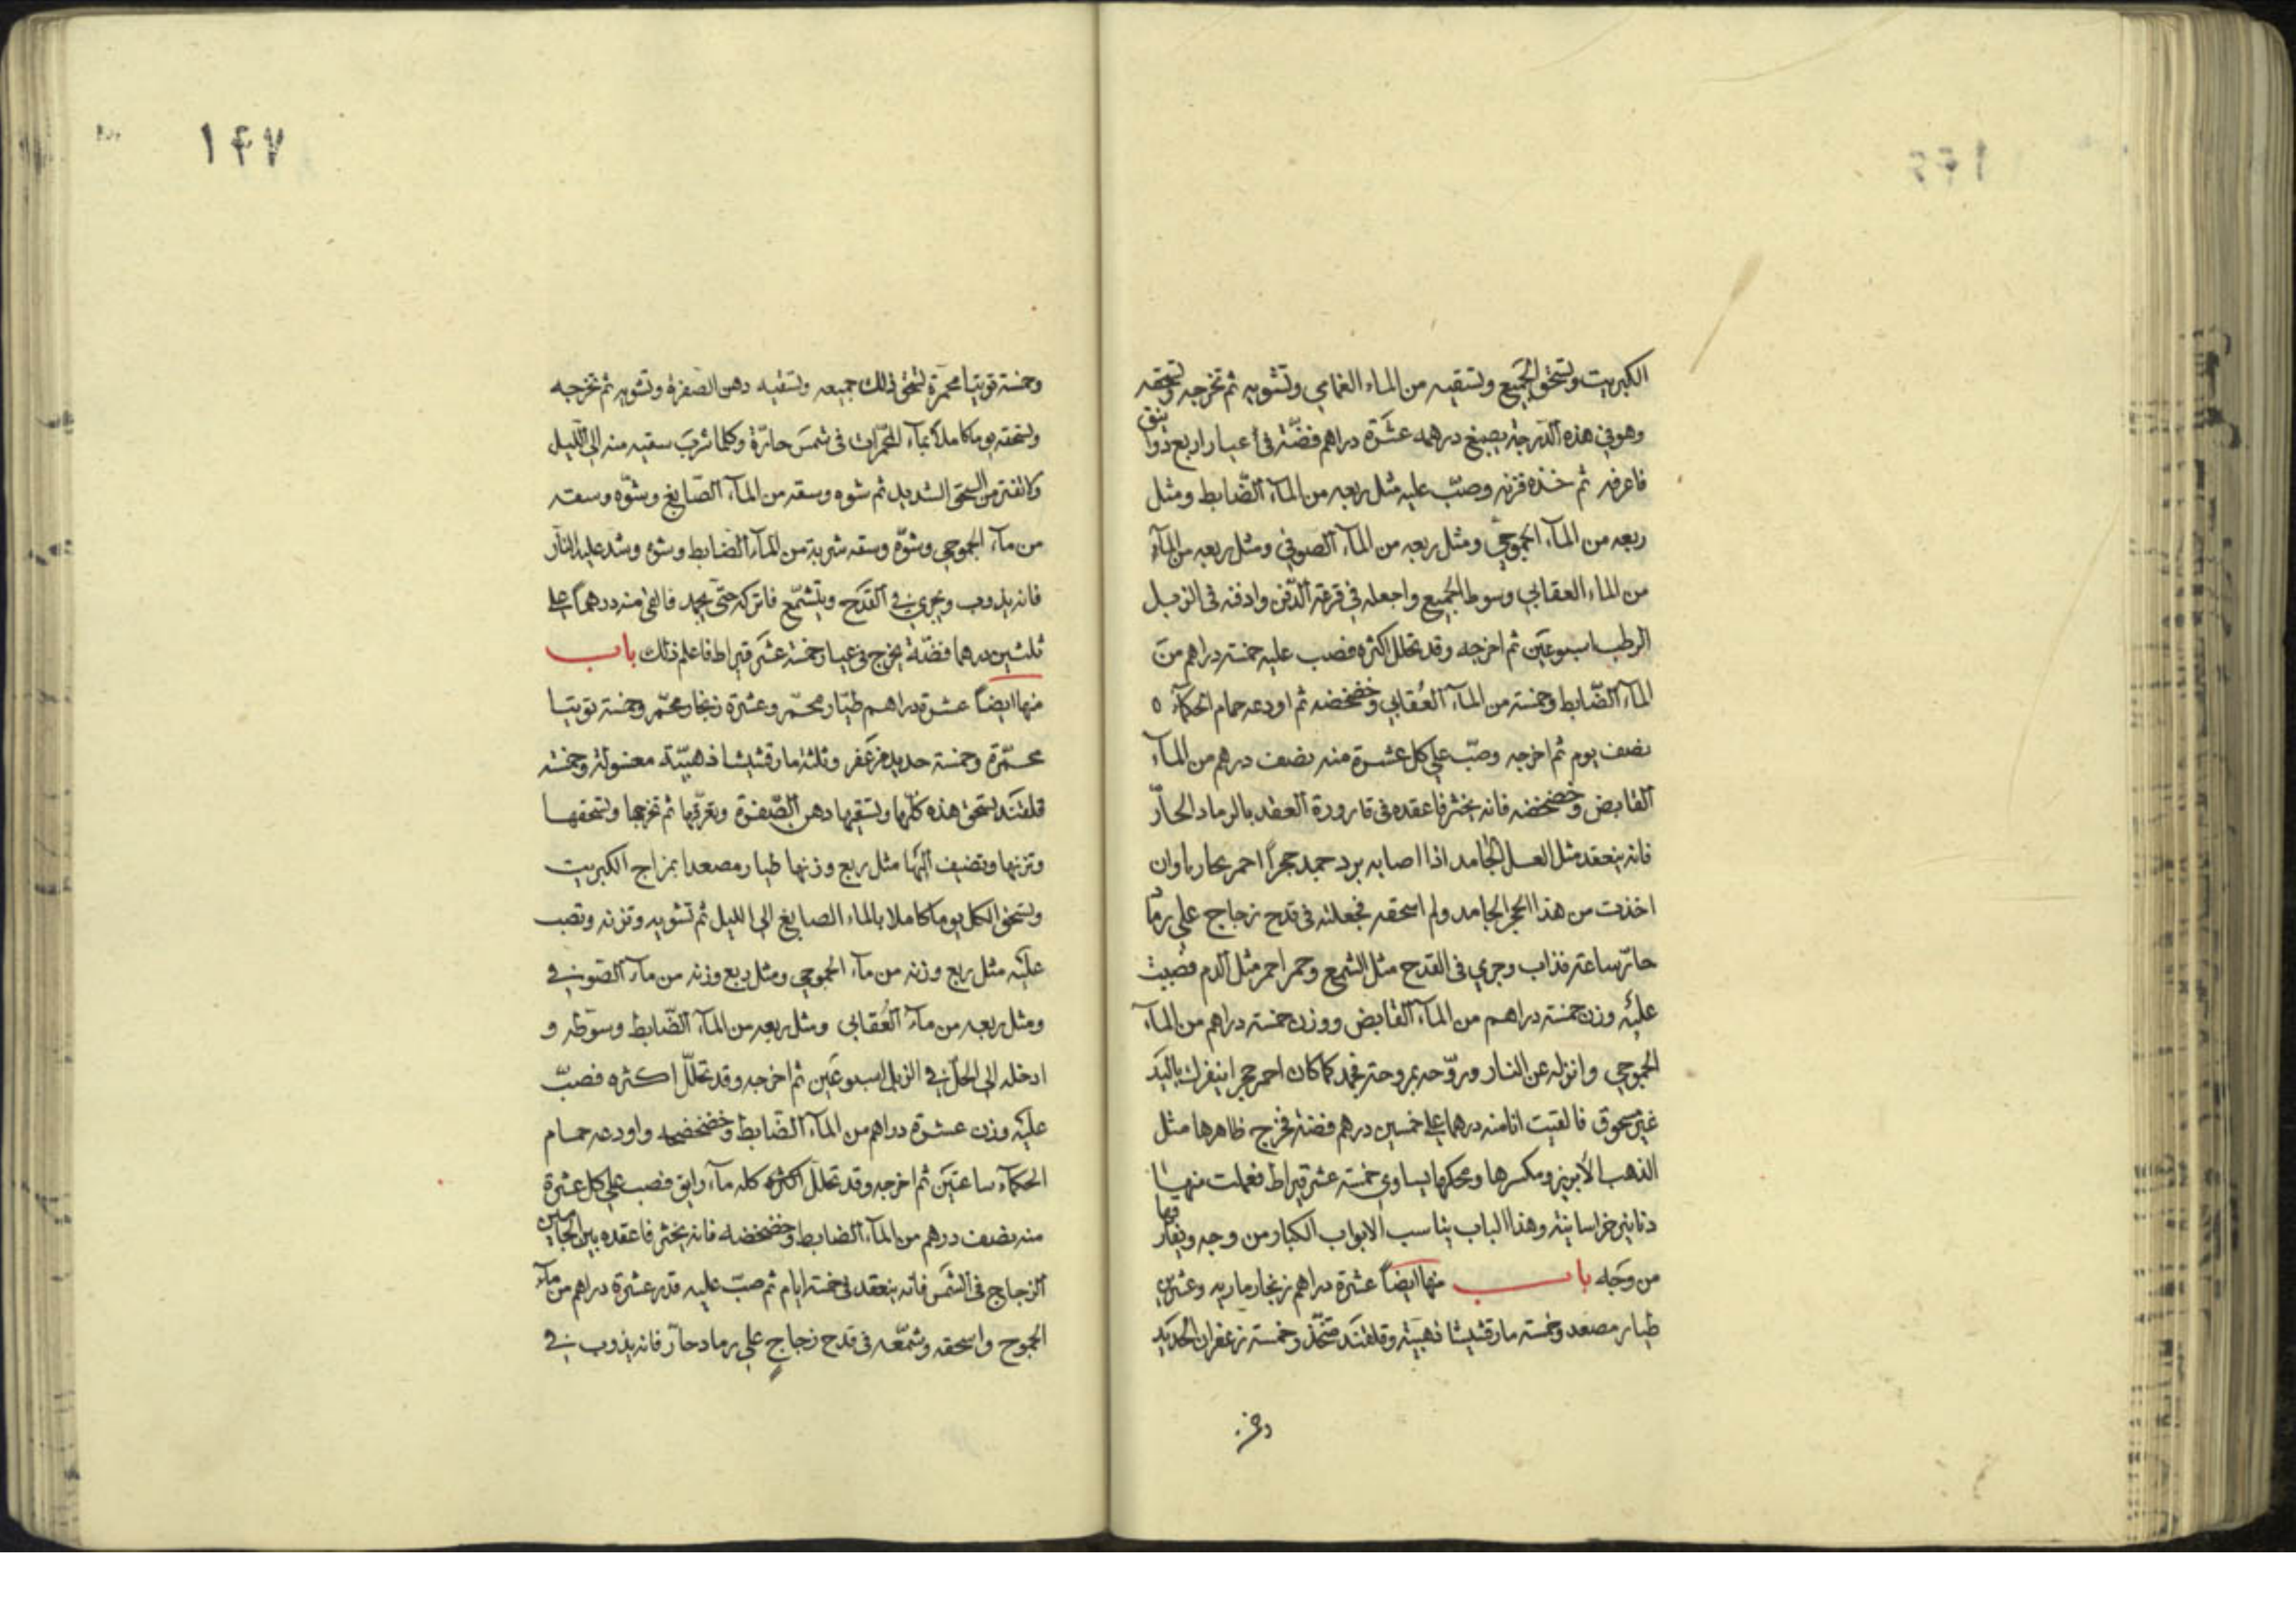 الكبريت وتسحق الجميع وتسقيه من الماء الغمامي وتشويه ثم تخرجه وتسحقه
وهو في هذه الدرجة يصبغ درهمه عشرة دراهم فضة في أعيار اربع ذوانيق
فاعرفه ثم خذه فزنه وصب عليه مثل ربعه من الماء الضابط ومثل
ربعه من الماء الجموحي ومثل ربعه من الماء الصوفي ومثل ربعه من الماء
من الماء العقابي وسوط الجميع واجعله في قرعة الدفن وادفنه في الزبل
الرطب اسبوعين ثم اخرجه وقد تحلل اكثره فصب عليه خمسة دراهم من
الماء الضابط وخمسة من الماء العقابي وخضخضه ثم اودعه حمام الحكماء
نصف يوم ثم اخرجه وصب على كل عشرة منه نصف درهم من الماء
القابض وخضخضه فانه يخثر فاعقده في قارورة العقد بالرماد الحار
فانه ينعقد مثل العسل الجامد اذا اصابه برد جمد حجرا احمر بحار باوان
اخذت من هذا الحجر الجامد ولم اسحقه فجعلته في قدح زجاج على رماد
حار ساعة فذاب وجرى في القدح مثل الشمع وحمر احمر مثل الدم فصببت
عليه وزن خمسة دراهم من الماء القابض ووزن خمسة دراهم من الماء
الجموحي وانزله عن النار وروحه بمروحة فجمد كما كان احمر حجرا ينفرك باليد
غير مسحوق فالقيت انا منه درهما على خمسين درهم فضة فخرج ظاهرها مثل
الذهب الابريز ومكسرها ومحكها يساوي خمسة عشر قيراط فعملت منها
دنانير خراسانية وهذا الباب يناسب الابواب الكبار من وجه ويفارقها
من وجه باب منها ايضا عشرة دراهم زنجار ماريه وعشرين
طيار مصعد وخمسة مارقشيشا ذهبية وقلقند متخذ وخمسة زعفران الحديد
وخمسة
١٤٧
وخمسة توتيا محمرة تسحق ذلك جميعه وتسقيه دهن الصفرة وتشويه ثم تخرجه
وتسحقه يوما كاملا بماء المحمرات في شمس حارة وكلما شرب سقيه منه الى الليل
من السحق الشديد ثم شوه وسقه من الماء الصابغ وشوه وسقه
من ماء الجموحي وشوه وسقه شربة من الماء الضابط وشوه وشد عليه النار
فانه يذوب ويجري في القدح ويتشمع فاتركه حتى يجمد فالقي منه درهما على
ثلثين درهما فضة يخرج في عيار خمسة عشر قيراط فاعلم ذلك باب
منها ايضا عشرة دراهم طيار محمر وعشرة زنجار محمر وخمسة توتيا
محمرة وخمسة حديد مزعفر وثلثة مارقشيشا ذهبية معسولة وخمسة
قلقند تسحق هذه كلها وتسقيها دهن الصفرة وتغرقها ثم تخرجها وتسحقها
وتزنها وتضيف اليها مثل ربع وزنها طيار مصعدا بمزاج الكبريت
وتسحق الكل يوما كاملا بالماء الصابغ الى الليل ثم تشويه وتزنه وتصب
عليه مثل ربع وزنه من ماء الجموحي ومثل ربع وزنه من ماء الصوفي
ومثل ربعه من ماء العقابي ومثل ربعه من الماء الضابط وسوطه و
ادخله الى الحل في الزبل اسبوعين ثم اخرجه وقد تحلل اكثره فصب
عليه وزن عشرة دراهم من الماء الضابط وخضخضه واودعه حمام
الحكماء ساعتين ثم اخرجه وقد تحلل اكثره كله ماء رايق فصب على كل عشرة
منه نصف درهم من الماء الضابط وخضخضه فانه يخثر فاعقده بين الجامين
الزجاج في الشمس فانه ينعقد في خمسة ايام ثم صب عليه قدر عشرة دراهم من ماء
الجموح واسحقه وشمعه في قدح زجاج على رماد حار فانه يذوب في